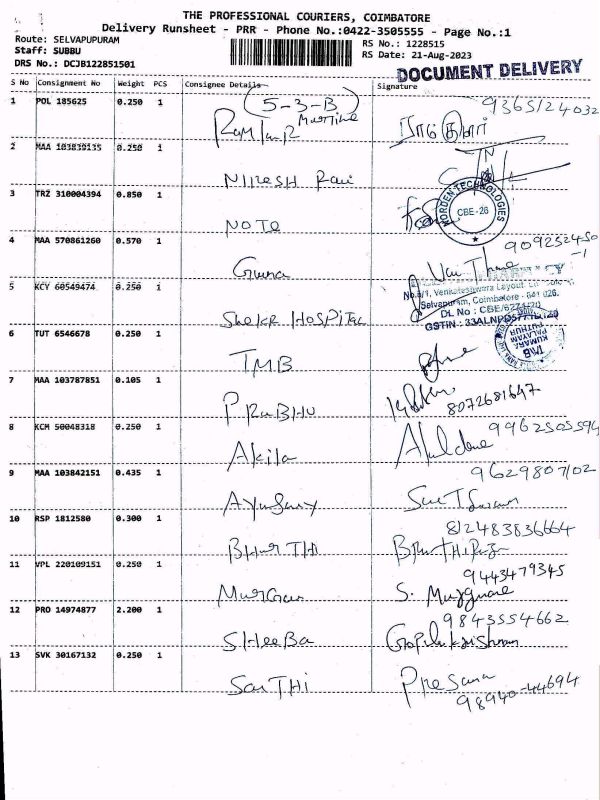 THE PROFESSIONAL COURIERS, COIMBATORE
Delivery Runsheet - PRR - Phone No.:0422-3505555 - Page No.:1
Route: SELVAPUPURAM
Staff: SUBBU
DRS No.: DCJB122851501
RS No.: 1228515
RS Date: 21-Aug-2023
DOCUMENT DELIVERY
S No Consignment No Weight PCS Consignee Details Signature
1 POL 185625 0.250 1 (5-3-B) 9365124032
2 MAA 103839135 0.250 1
NITESH Ravi
NORDEN TECHNOLOGIES
CBE-26
3 TRZ 310004394 0.850 1
NOTO
4 MAA 570861260 0.570 1 909252450
-1
Guna
No.6/1, Venkateshwara Layout
Selvapuram, Coimbatore - 641 026.
DL No : CBE/6274/20
GSTIN : 33ALNPD
5 KCY 60549474 0.250 1
Shekr HOSPITAL
6 TUT 6546678 0.250 1
TMB
TMB
KUMARA
PALAYAM
PUTHUR
7 MAA 103787851 0.105 1
PRABHU 8072681647
8 KCM 50048318 0.250 1 9962505594
Akila
9 MAA 103842151 0.435 1 9629807102
10 RSP 1812580 0.300 1 812483836664
BHARTHI
11 VPL 220109151 0.250 1 9443479345
Murgan S.
12 PRO 14974877 2.200 1 9843554662
SHEEBA Gopilakrishnan
13 SVK 30167132 0.250 1
SarTHi Presana
98940-44694